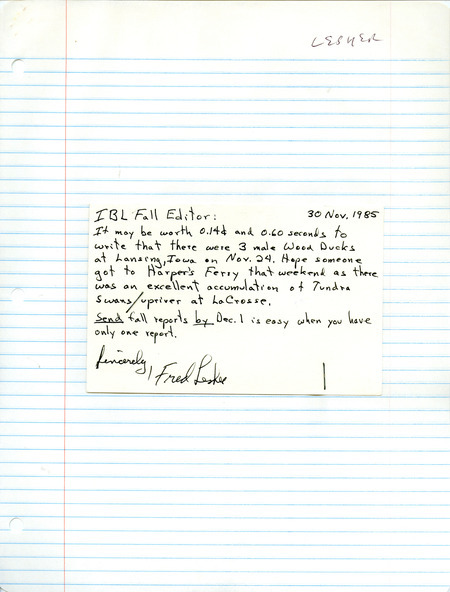 LESHER
IBL Fall Editor:
30 Nov. 1985
It may be worth 0.14¢ and 0.60 seconds to
write that there were 3 male Wood Ducks
at Lansing, Iowa on Nov. 24. Hope someone
got to Harper's Ferry that weekend as there
was an excellent accumulation of Tundra
Swans/upriver at LaCrosse.
Send fall reports by Dec. 1 is easy when you have
only one report.
Sincerely,
Fred Lesher